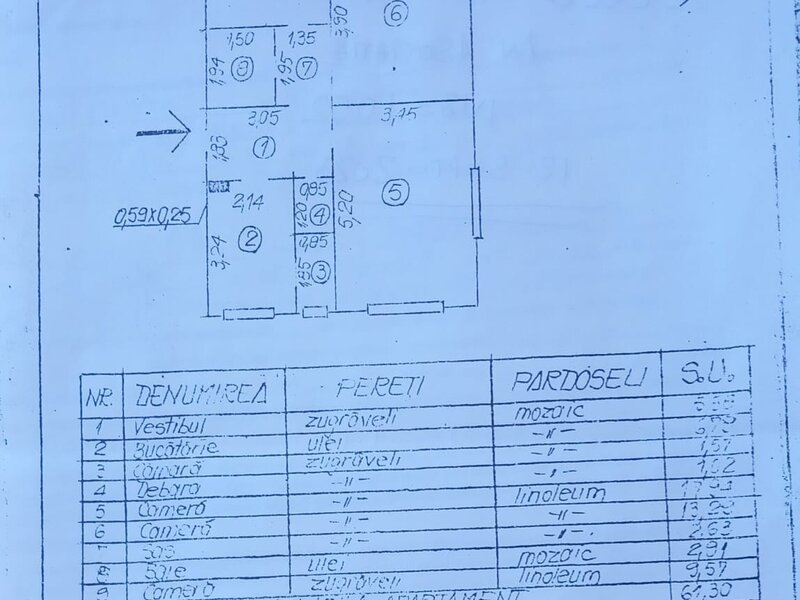 3,90
6
1,50
1,35
1,94
8
1,95
7
3,05
3,75
1,85
1
0,85
2,14
1,20
4
5,20
5
0,59x0,25
3,24
2
0,85
1,85
3
NR. DENUMIREA PEREȚI PARDOSELI S.U.
1 Vestibul zugrăveli mozaic
2 Bucătărie ulei -"-
3 Cămară zugrăveli -"- 1,57
4 Debara -"- -"- 1,02
5 Cameră -"- linoleum
6 Cameră -"- -"-
Sas -"- -"- 2,63
8 Baie ulei mozaic 2,91
9 Cameră zugrăveli linoleum 9,57
APARTAMENT 61,30